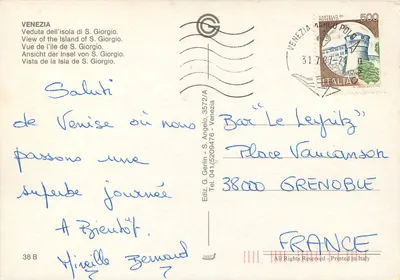 VENEZIA
Veduta dell'isola di S. Giorgio.
View of the Island of S. Giorgio.
Vue de l'île de S. Giorgio.
Ansicht der Insel von S. Giorgio.
Vista de la Isla de S. Giorgio.
Saluti
de Venise où nous
passons une
superbe journée
A Bientôt.
Mireille Bernard
38 B
Ediz. G. Gerlin - S. Angelo, 3572/A
Tel. 041/5209476 - Venezia
G
VENEZIA
31.7.
500
ITALIA
Bar "Le
Place Vaucanson
38000 GRENOBLE
FRANCE
All Rights Reserved - Printed in Italy